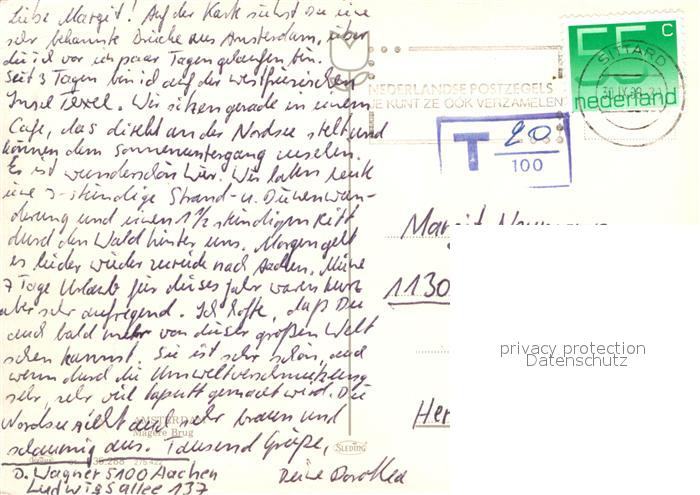 Liebe Margit! Auf der Karte siehst Du eine
sehr bekannte Brücke aus Amsterdam, über
die ich vor ein paar Tagen gelaufen bin.
Seit 3 Tagen bin ich auf der westfriesischen
Insel Texel. Wir sitzen gerade in einem
Cafe, das direkt an der Nordsee steht und
können dem Sonnenuntergang zusehen.
Es ist wunderschön hier. Wir haben heute
eine 3-stündige Strand- u. Dünenwan-
derung und einen 1 1/2 stündigen Ritt
durch den Wald hinter uns. Morgen geht
es leider wieder zurück nach Aachen. Meine
7 Tage Urlaub für dieses Jahr waren kurz
aber sehr aufregend. Ich hoffe, daß Du
auch bald mehr von dieser großen Welt
sehen kannst. Sie ist sehr schön, auch
wenn durch die Umweltverschmutzung
sehr, sehr viel kaputt gemacht wird. Die
Nordsee sieht auch sehr braun und
schaumig aus. Tausend Grüße,
Deine Dorothea
D. Wagner 5100 Aachen
Ludwigsallee 137
AMSTERDAM
Magere Brug
SLEDING
NEDERLANDSE POSTZEGELS
JE KUNT ZE OOK VERZAMELEN
SITTARD
55 c
nederland
T 20
100
Margit
1130
Her
privacy protection
Datenschutz